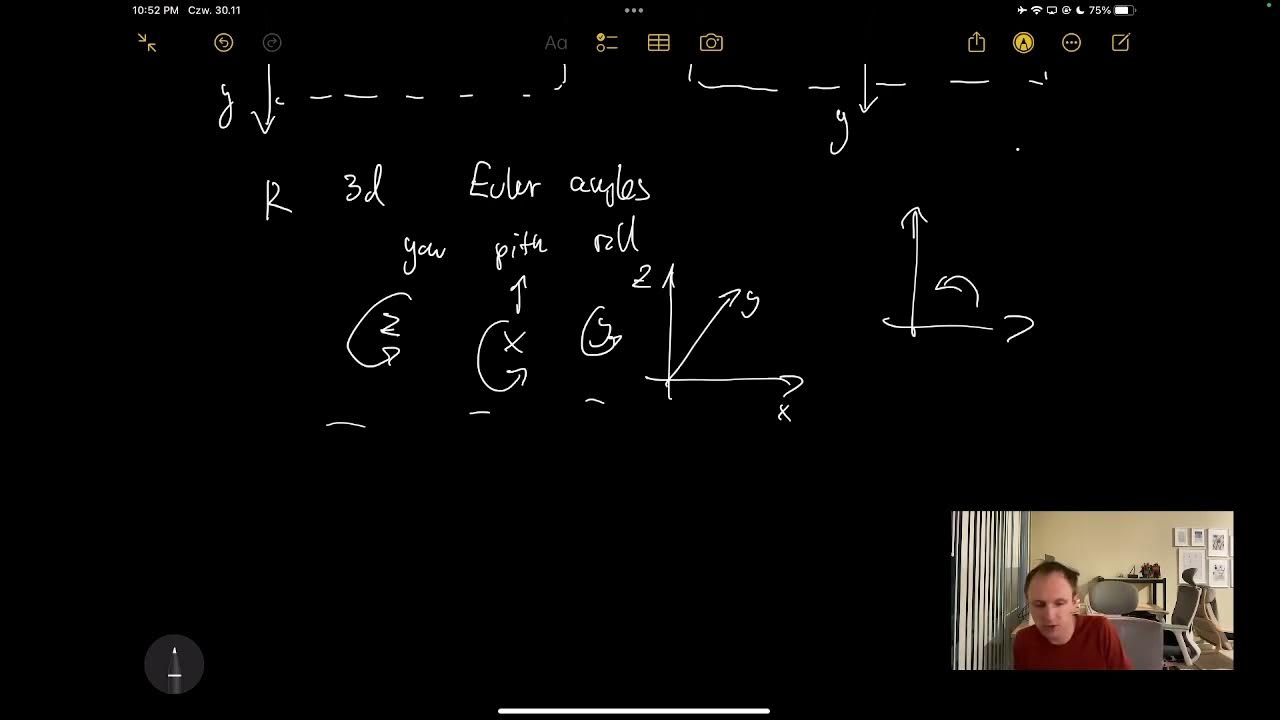 10:52 PM Czw. 30.11
75%
Aa
y
y
R 3d Euler angles
yaw pith roll
z x y
z
y
x